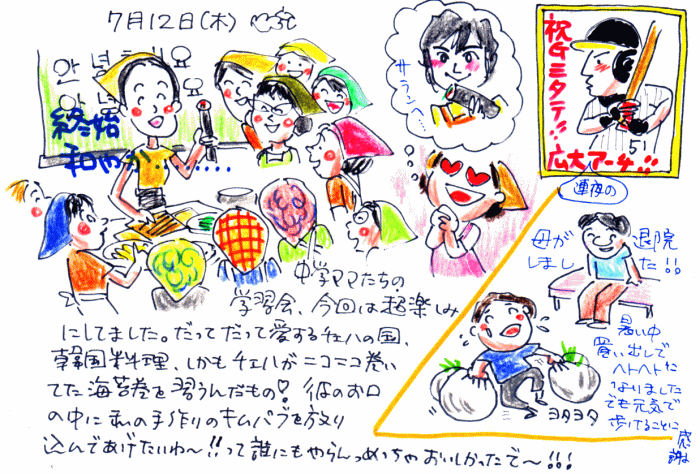 7月12日(木)
안녕하세요
안
終始
和やか.......
サランヘ...
祝Gミタテ!!
広大アーチ!!
51
連夜の
母が退院
しました!!
暑い中
買い出しで
ヘトヘトに
なりました
でも元気で
歩けることに
感謝
ヨタヨタ
中学ママたちの
学習会、今回は超楽しみ
にしてました。だってだって愛するチェハの国、
韓国料理、しかもチェハがニコニコ巻い
てた海苔巻を習うんだもの♡彼のお口
の中に私の手作りのキムパプを放り
込んであげたいわ〜!!って誰にもやらんっめっちゃおいしかったで〜!!!